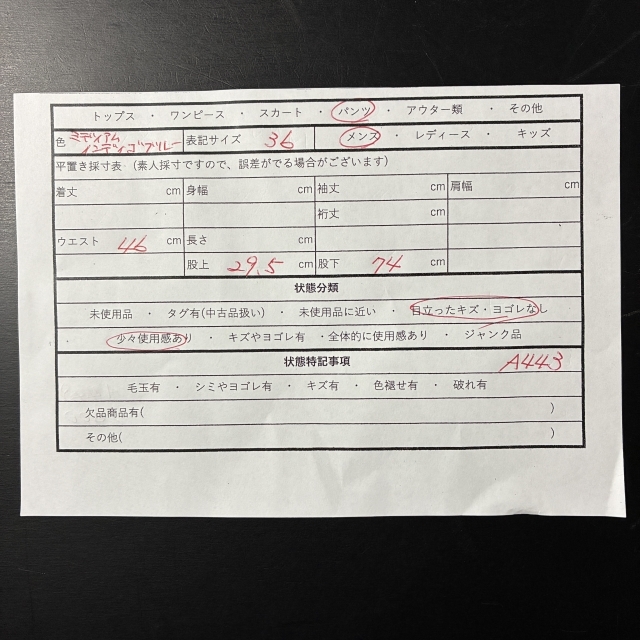 トップス ・ ワンピース ・ スカート ・ パンツ ・ アウター類 ・ その他
色 ミディアム インディゴブルー 表記サイズ 36 メンズ ・ レディース ・ キッズ
平置き採寸表 (素人採寸ですので、誤差がでる場合がございます)
着丈 cm 身幅 cm 袖丈 cm 肩幅 cm
裄丈 cm
ウエスト 46 cm 長さ cm
股上 29.5 cm 股下 74 cm
状態分類
未使用品 ・ タグ有(中古品扱い) ・ 未使用品に近い ・ 目立ったキズ・ヨゴレなし
・ 少々使用感あり ・ キズやヨゴレ有 ・全体的に使用感あり ・ ジャンク品
状態特記事項 A443
毛玉有 ・ シミやヨゴレ有 ・ キズ有 ・ 色褪せ有 ・ 破れ有
欠品商品有( )
その他( )